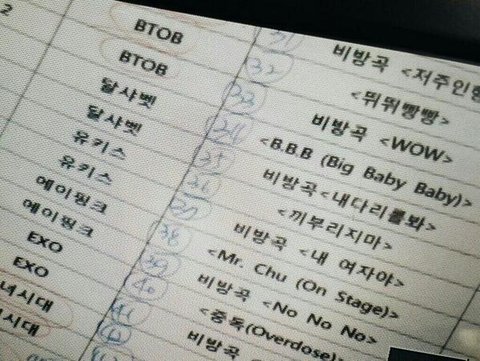 2
31 비방곡 <저주인형
BTOB 32 <뛰뛰빵빵>
BTOB 33 비방곡 <WOW>
달샤벳 34 <B.B.B (Big Baby Baby)>
달샤벳 35 비방곡<내다리를봐>
유키스 36 <끼부리지마>
유키스 37 비방곡 <내 여자야>
에이핑크 38 <Mr. Chu (On Stage)>
에이핑크 39 비방곡 <No No No>
EXO 40 <중독(Overdose)>
EXO 41 비방곡
녀시대
시대